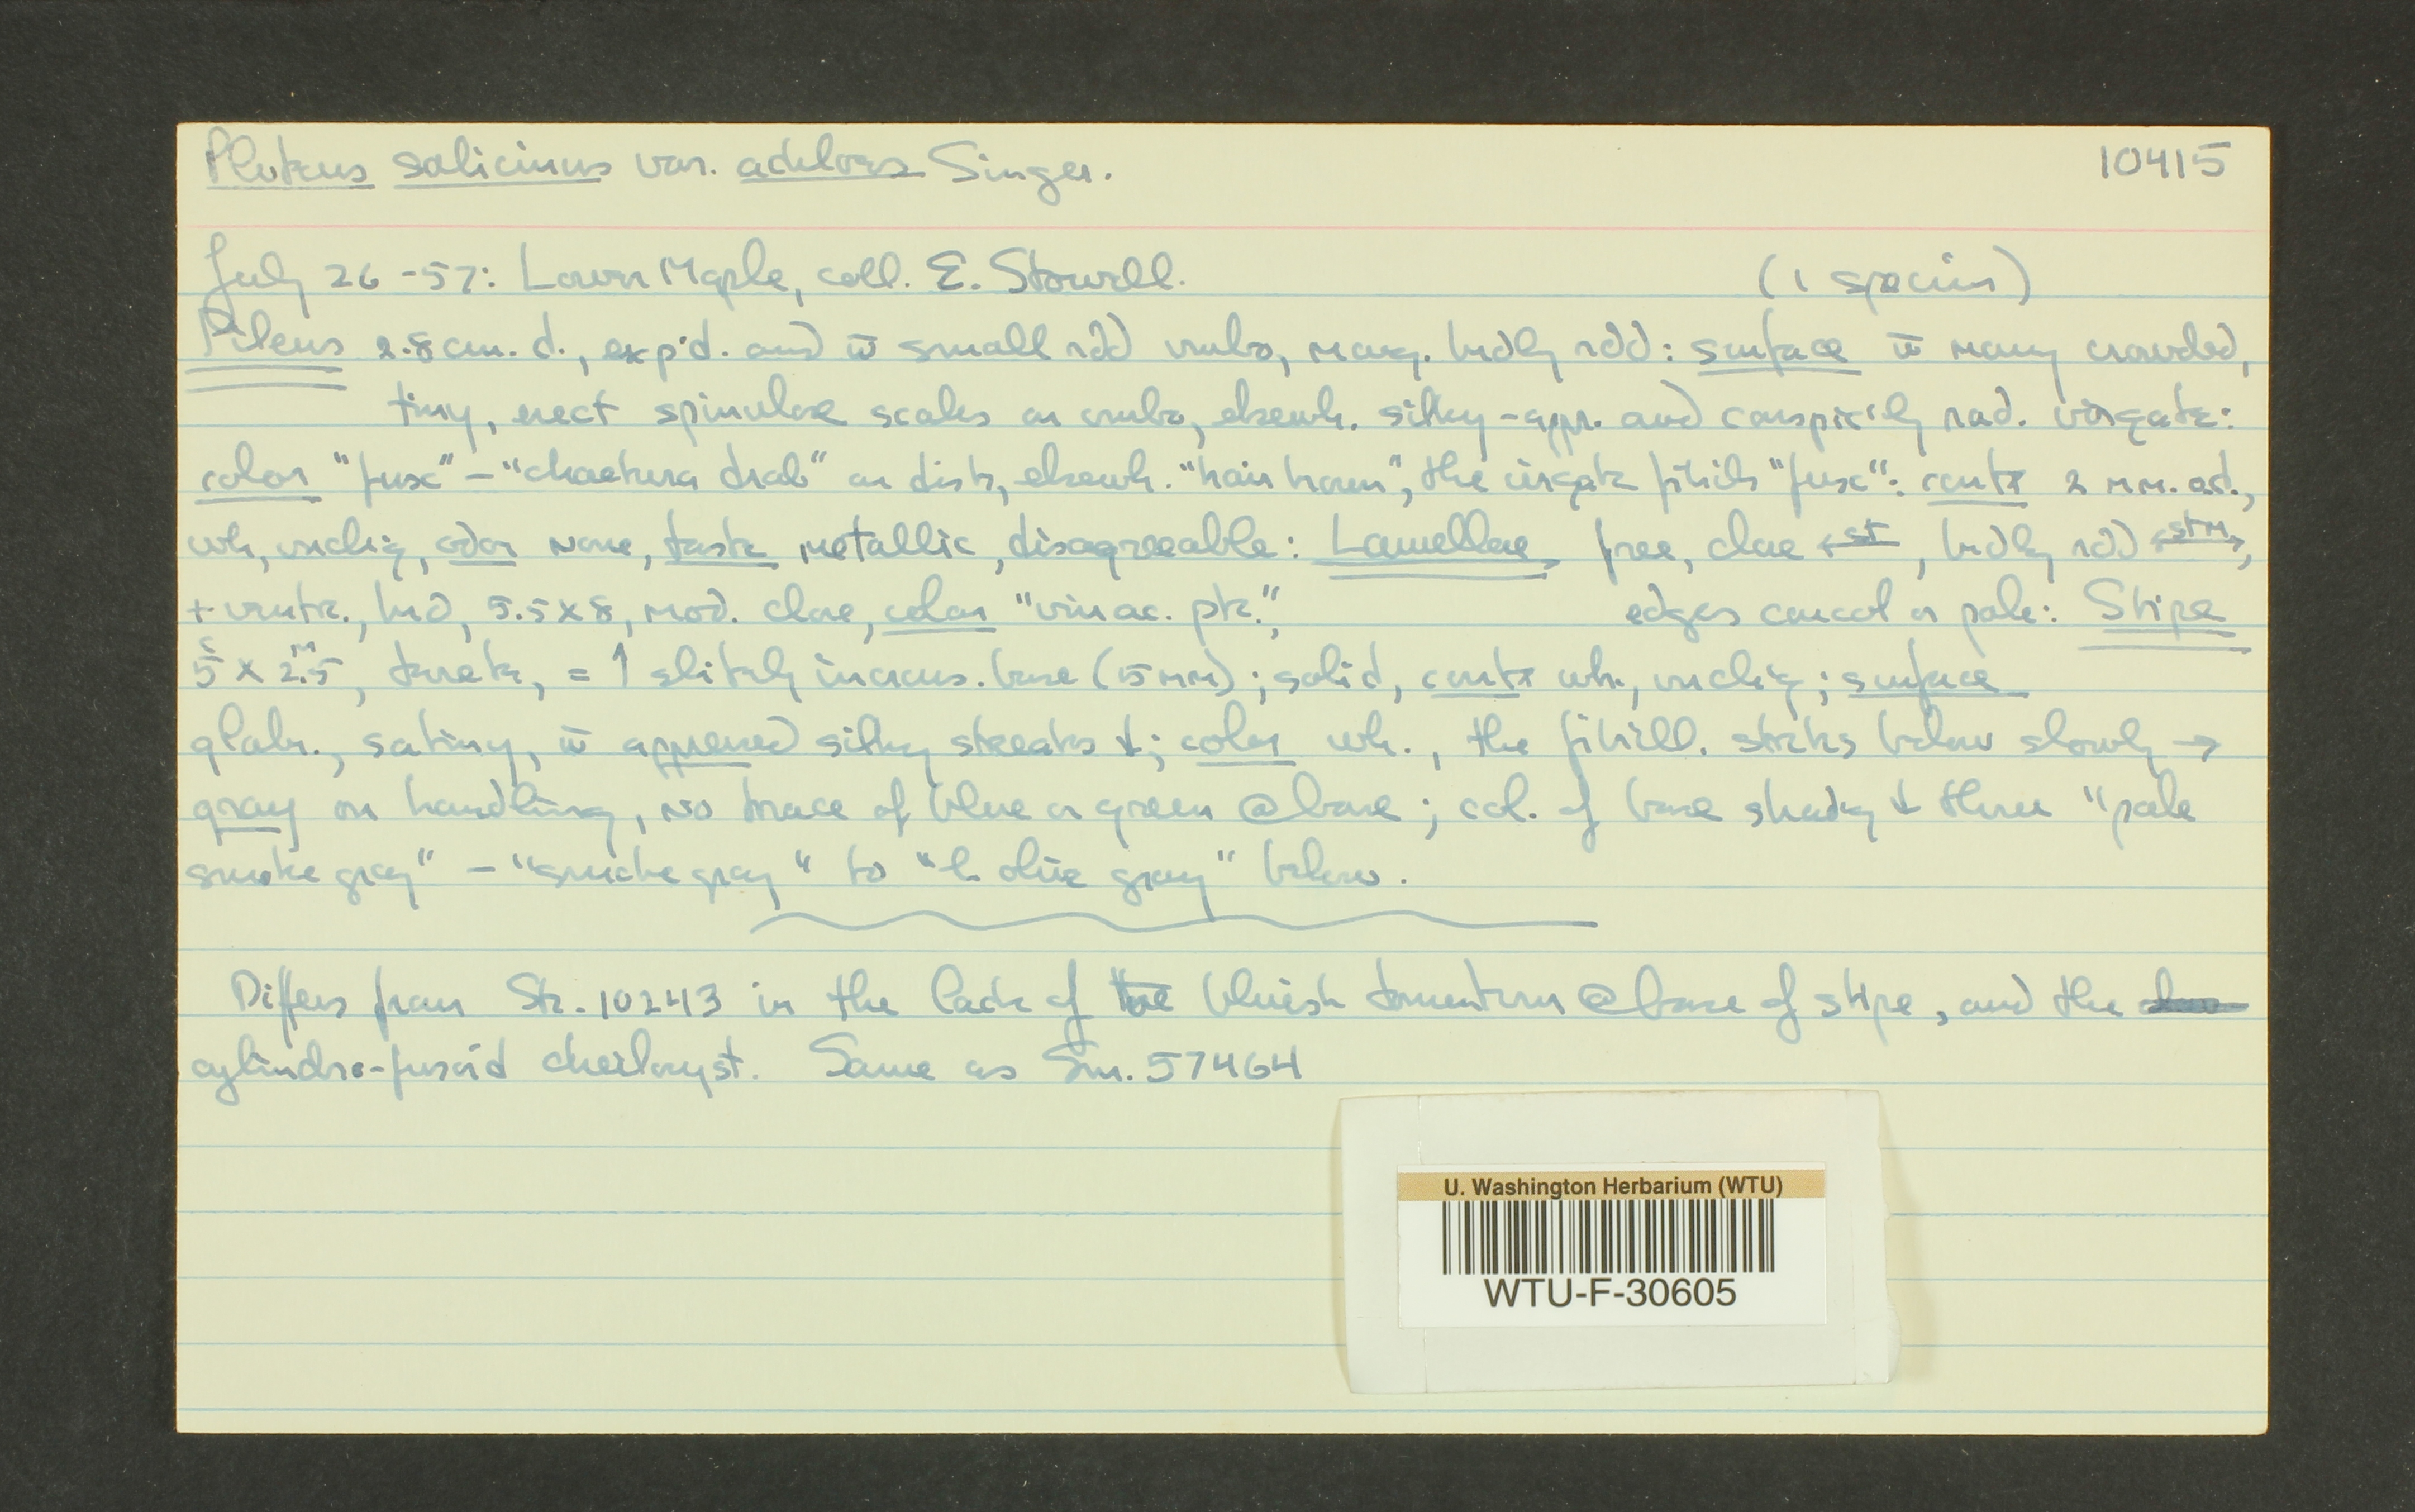 Pluteus salicinus var. achloes Singer. 10415
July 26 -57: Lower Maple, coll. E. Stowell. (1 specim)
Pileus 2.8 cm. d., exp'd. and w̄ small rdd umbo, marg. brdly rdd: surface w̄ many crowded,
tiny, erect spinulose scales on umbo, elsewh. silky-appr. and conspic'ly rad. virgate:
color "fusc" - "chaetura drab" on disk, elsewh. "hair brown", the virgate fibrils "fusc": contx 2 mm. ad.,
wh, unchg, odor none, taste metallic, disagreeable: Lamellae free, close ←st, brdly rdd ←st M→,
+ ventr., brd, 5.5 x 8, mod. close, color "vinac. pk.", edges concol or pale: Stipe
5 c x 2.5 m, terete, = ↑ slitely increas. base (5 mm); solid, contx wh, unchg; surface
glabr., satiny, w̄ appressed silky streaks ↓; color wh., the fibrill. streks below slowly →
gray on handling, no trace of blue or green @ base; col. of base shadg ↓ thru "pale
smoke gray" - "smoke gray" to "l. olive gray" below.
Differs from Stz. 10243 in the lack of the bluish tomentum @ base of stipe, and the
cylindro-fusoid cheilocyst. Same as Sm. 57464
U. Washington Herbarium (WTU)
WTU-F-30605